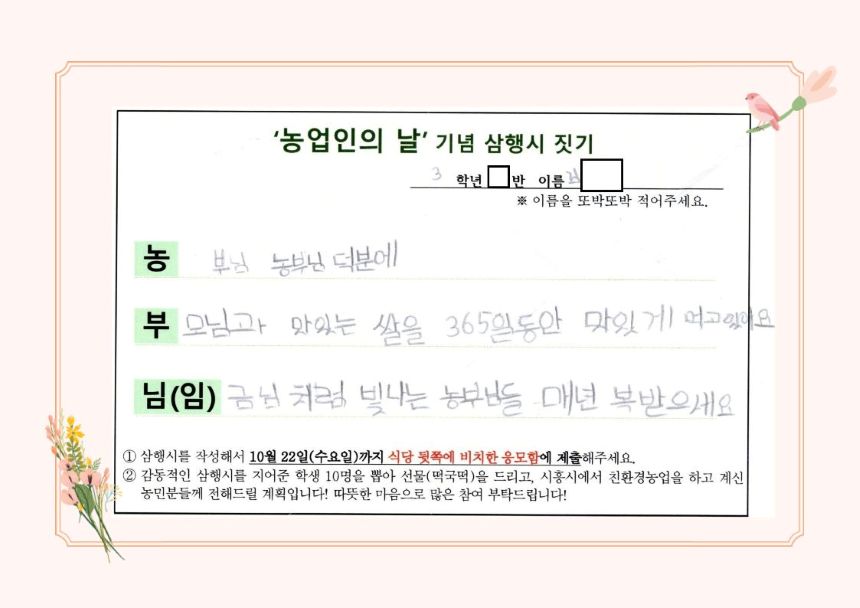 ‘농업인의 날’ 기념 삼행시 짓기
3 학년 반 이름
※ 이름을 또박또박 적어주세요.
농 부님 농부님 덕분에
부 모님과 맛있는 쌀을 365일동안 맛있게 먹고있어요
님(임) 금님 처럼 빛나는 농부님들 매년 복받으세요
① 삼행시를 작성해서 10월 22일(수요일)까지 식당 뒷쪽에 비치한 응모함에 제출해주세요.
② 감동적인 삼행시를 지어준 학생 10명을 뽑아 선물(떡국떡)을 드리고, 시흥시에서 친환경농업을 하고 계신
농민분들께 전해드릴 계획입니다! 따뜻한 마음으로 많은 참여 부탁드립니다!